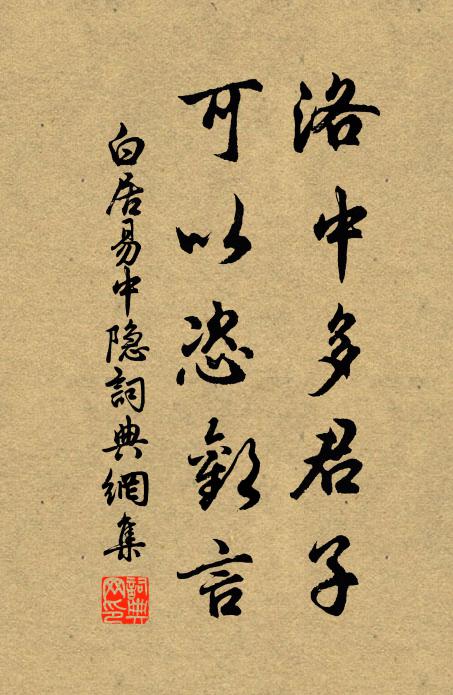 洛中多君子
可以恣歡言
白居易中隐詞典網集
詞典网印